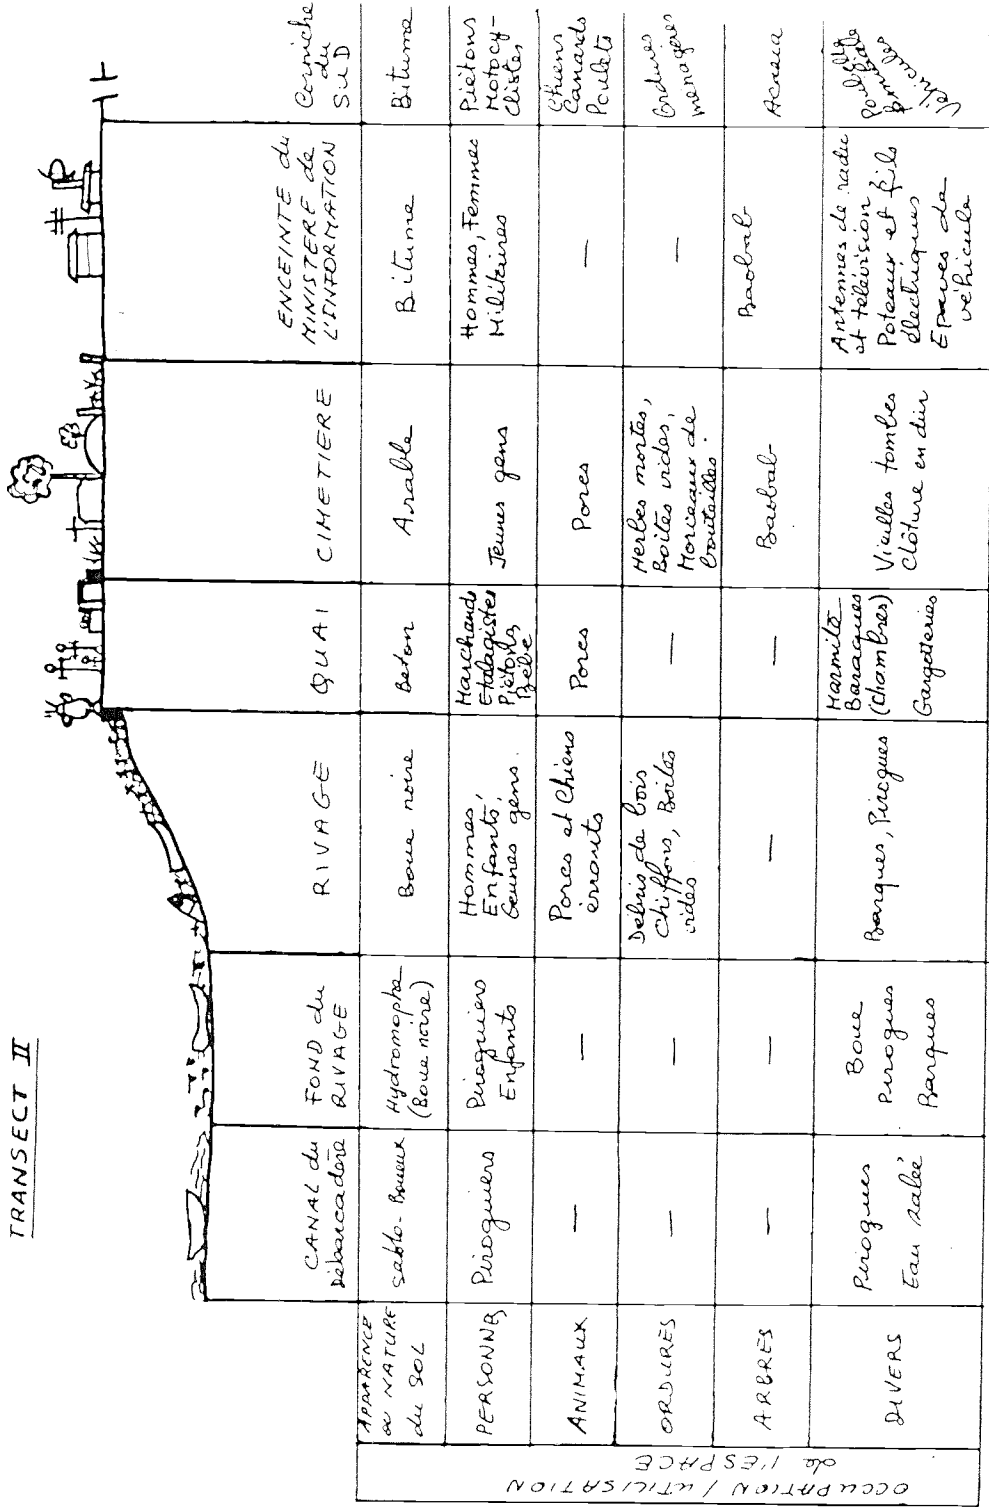 TRANSECT II
CANAL du
Débarcadère
FOND du
RIVAGE
RIVAGE
QUAI
CIMETIERE
ENCEINTE du
MINISTERE de
L'INFORMATION
Corniche
du
SUD
OCCUPATION / UTILISATION
de l'ESPACE
APPARENCE
ou NATURE
du SOL
Sablo-Boueux
Hydromophe
(Boue noire)
Boue noire
Beton
Arable
Bitume
Bitume
PERSONNES
Piroguiers
Piroguiers
Enfants
Hommes
Enfants,
Jeunes gens.
Marchands
Etalagistes
Piétons
Bébé
Jeunes gens
Hommes, Femmes
Militaires
Piétons
Motocy-
clistes
ANIMAUX
—
—
Porcs et Chiens
errants
Porcs
Porcs
—
Chiens
Canards
Poulets
ORDURES
—
—
Débris de bois
Chiffons, Boites
vides
—
Herbes mortes,
Boites vides,
Morceaux de
bouteilles
—
Ordures
menagères
ARBRES
—
—
—
—
Baobab
Baobab
Acacia
DIVERS
Pirogues
Eau salée
Boue
Pirogues
Barques
Barques, Pirogues
Marmite
Baraques
(chambres)
Gargotteries
Vieilles tombes
Clôture en dur
Antennes de radio
et télévision
Poteaux et fils
électriques
Epaves de
véhicule
Véhicules